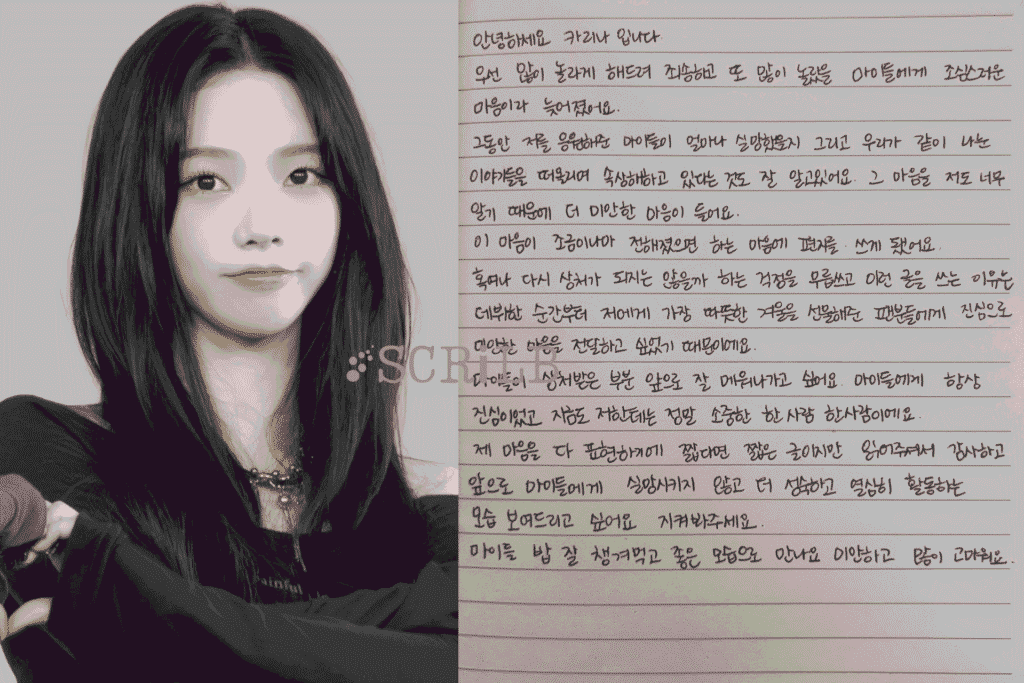 ainful
SCRiLR
안녕하세요 카리나 입니다
우선 많이 놀라게 해드려 죄송하고 또 많이 놀랐을 마이들에게 조심스러운
마음이라 늦어졌어요.
그동안 저를 응원해준 마이들이 얼마나 실망했을지 그리고 우리가 같이 나눈
이야기들을 떠올리며 속상해하고 있다는 것도 잘 알고있어요. 그 마음을 저도 너무
알기 때문에 더 미안한 마음이 들어요.
이 마음이 조금이나마 전해졌으면 하는 마음에 편지를 쓰게 됐어요
혹여나 다시 상처가 되지는 않을까 하는 걱정을 무릅쓰고 이런 글을 쓰는 이유는
데뷔한 순간부터 저에게 가장 따뜻한 겨울을 선물해준 팬분들에게 진심으로
미안한 마음을 전달하고 싶었기 때문이에요.
마이들이 상처받은 부분 앞으로 잘 메워나가고 싶어요. 마이들에게 항상
진심이었고 지금도 저한테는 정말 소중한 한사람 한사람이에요.
제 마음을 다 표현하기에 짧다면 짧은 글이지만 읽어주셔서 감사하고
앞으로 마이들에게 실망시키지 않고 더 성숙하고 열심히 활동하는
모습 보여드리고 싶어요 지켜봐주세요.
마이들 밥 잘 챙겨먹고 좋은 모습으로 만나요 미안하고 많이 고마워요.